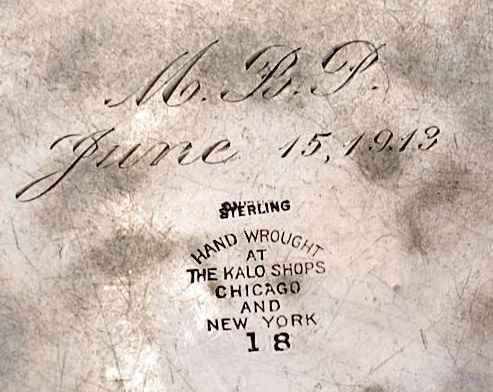 M. B. P.
June 15, 1913
STERLING
HAND WROUGHT
AT
THE KALO SHOPS
CHICAGO
AND
NEW YORK
18